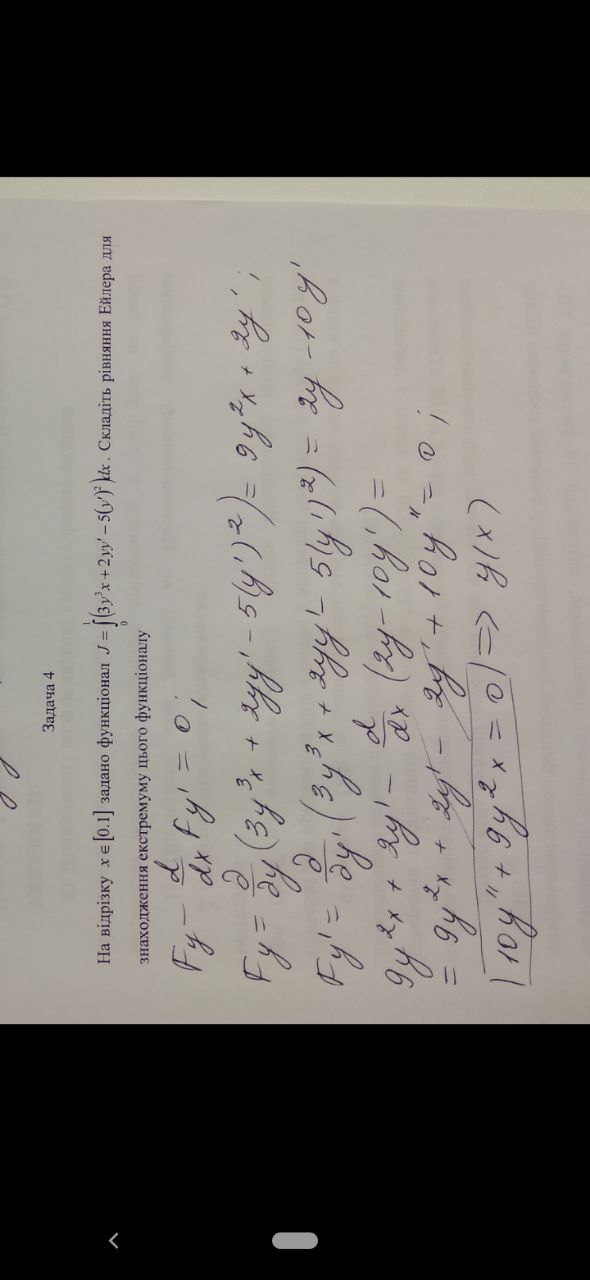 Задача 4
На відрізку x ∈ [0.1] задано функціонал J = ∫₀¹(3y³x + 2yy' − 5(y')²)dx. Складіть рівняння Ейлера для
знаходження екстремуму цього функціоналу
Fy − d/dx Fy' = 0;
Fy = ∂/∂y (3y³x + 2yy' − 5(y')²) = 9y²x + 2y';
Fy' = ∂/∂y' (3y³x + 2yy' − 5(y')²) = 2y − 10y'
9y²x + 2y' − d/dx (2y − 10y') =
= 9y²x + 2y' − 2y' + 10y'' = 0;
10y'' + 9y²x = 0 ⇒ y(x)